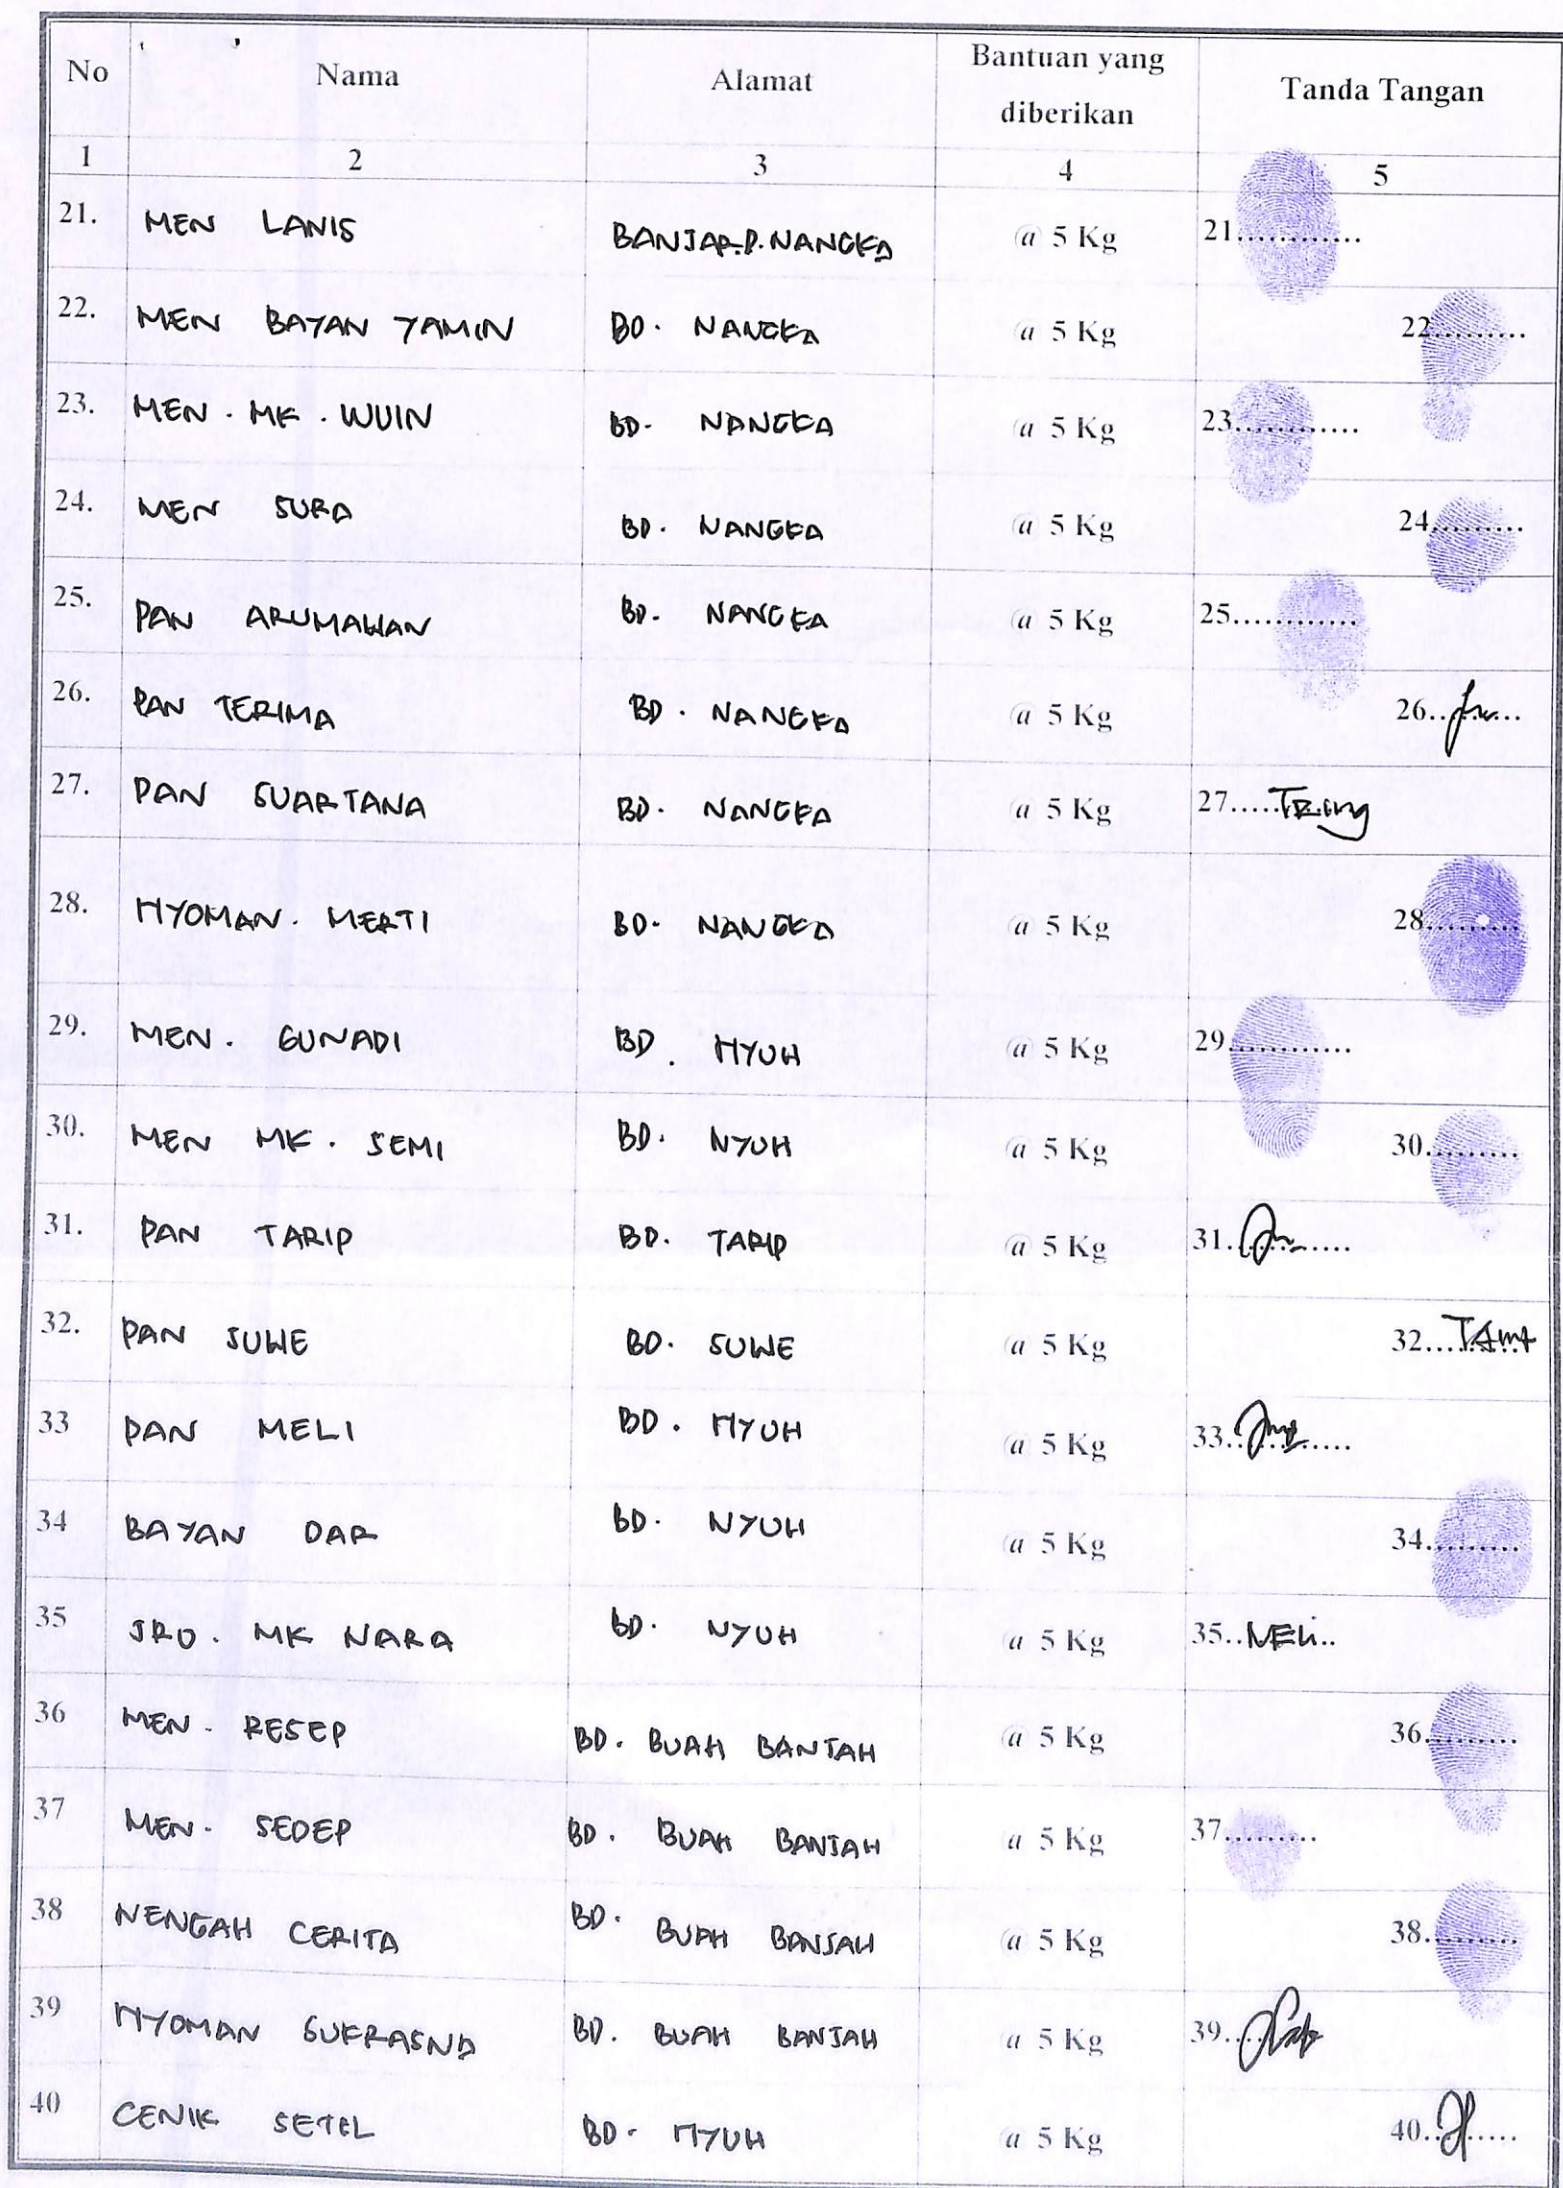 No Nama Alamat Bantuan yang diberikan Tanda Tangan
1 2 3 4 5
21. MEN LANIS BANJAR.D.NANGKA @ 5 Kg 21............
22. MEN BAYAN YAMIN BD. NANGKA @ 5 Kg 22.........
23. MEN . MK . WUIN BD. NANGKA @ 5 Kg 23............
24. MEN SURA BD. NANGKA @ 5 Kg 24.........
25. PAN ARUMAWAN BD. NANGKA @ 5 Kg 25............
26. PAN TERIMA BD. NANGKA @ 5 Kg 26.........
27. PAN SUARTANA BD. NANGKA @ 5 Kg 27.....
28. NYOMAN. MERTI BD. NANGKA @ 5 Kg 28.........
29. MEN. GUNADI BD. NYUH @ 5 Kg 29............
30. MEN MK. SEMI BD. NYUH @ 5 Kg 30.........
31. PAN TARIP BD. TARIP @ 5 Kg 31............
32. PAN SUWE BD. SUWE @ 5 Kg 32.........
33 PAN MELI BD. NYUH @ 5 Kg 33............
34 BAYAN DAR BD. NYUH @ 5 Kg 34.........
35 JRO. MK NARA BD. NYUH @ 5 Kg 35..NELI..
36 MEN. RESEP BD. BUAH BANJAH @ 5 Kg 36.........
37 MEN. SEDEP BD. BUAH BANJAH @ 5 Kg 37.........
38 NENGAH CERITA BD. BUAH BANJAH @ 5 Kg 38.........
39 NYOMAN SUKRASNA BD. BUAH BANJAH @ 5 Kg 39.........
40 CENIK SETEL BD. NYUH @ 5 Kg 40.........